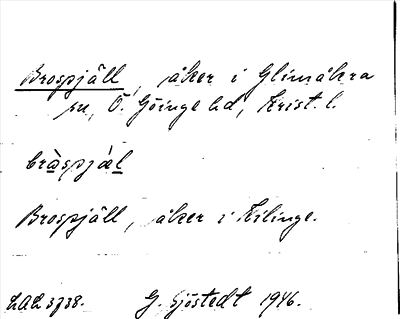 Brospjäll, åker i Glimåkra
sn, Ö. Göinge hd, Krist. l.
bràspjàl
Brospjäll, åker i Kilinge.
LAL 3738. G. Sjöstedt 1946.